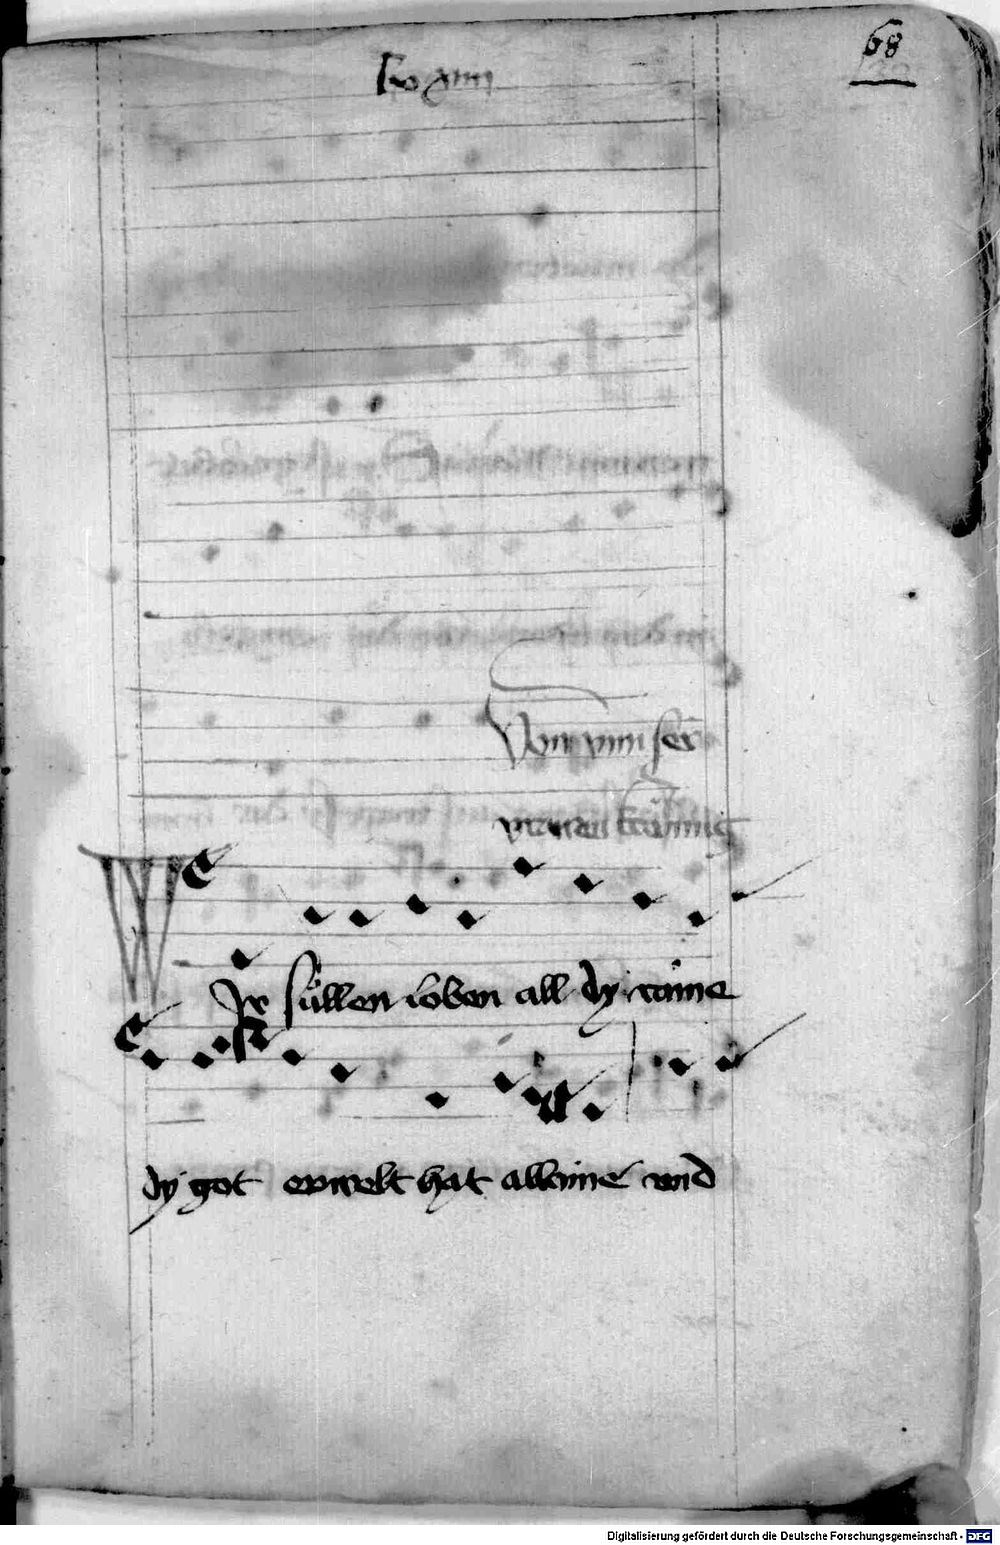 68
Von vnnser
vrawen
Wir süllen loben all dy raine
dy got erwelt hat allaine vnd
Digitalisierung gefördert durch die Deutsche Forschungsgemeinschaft - DFG